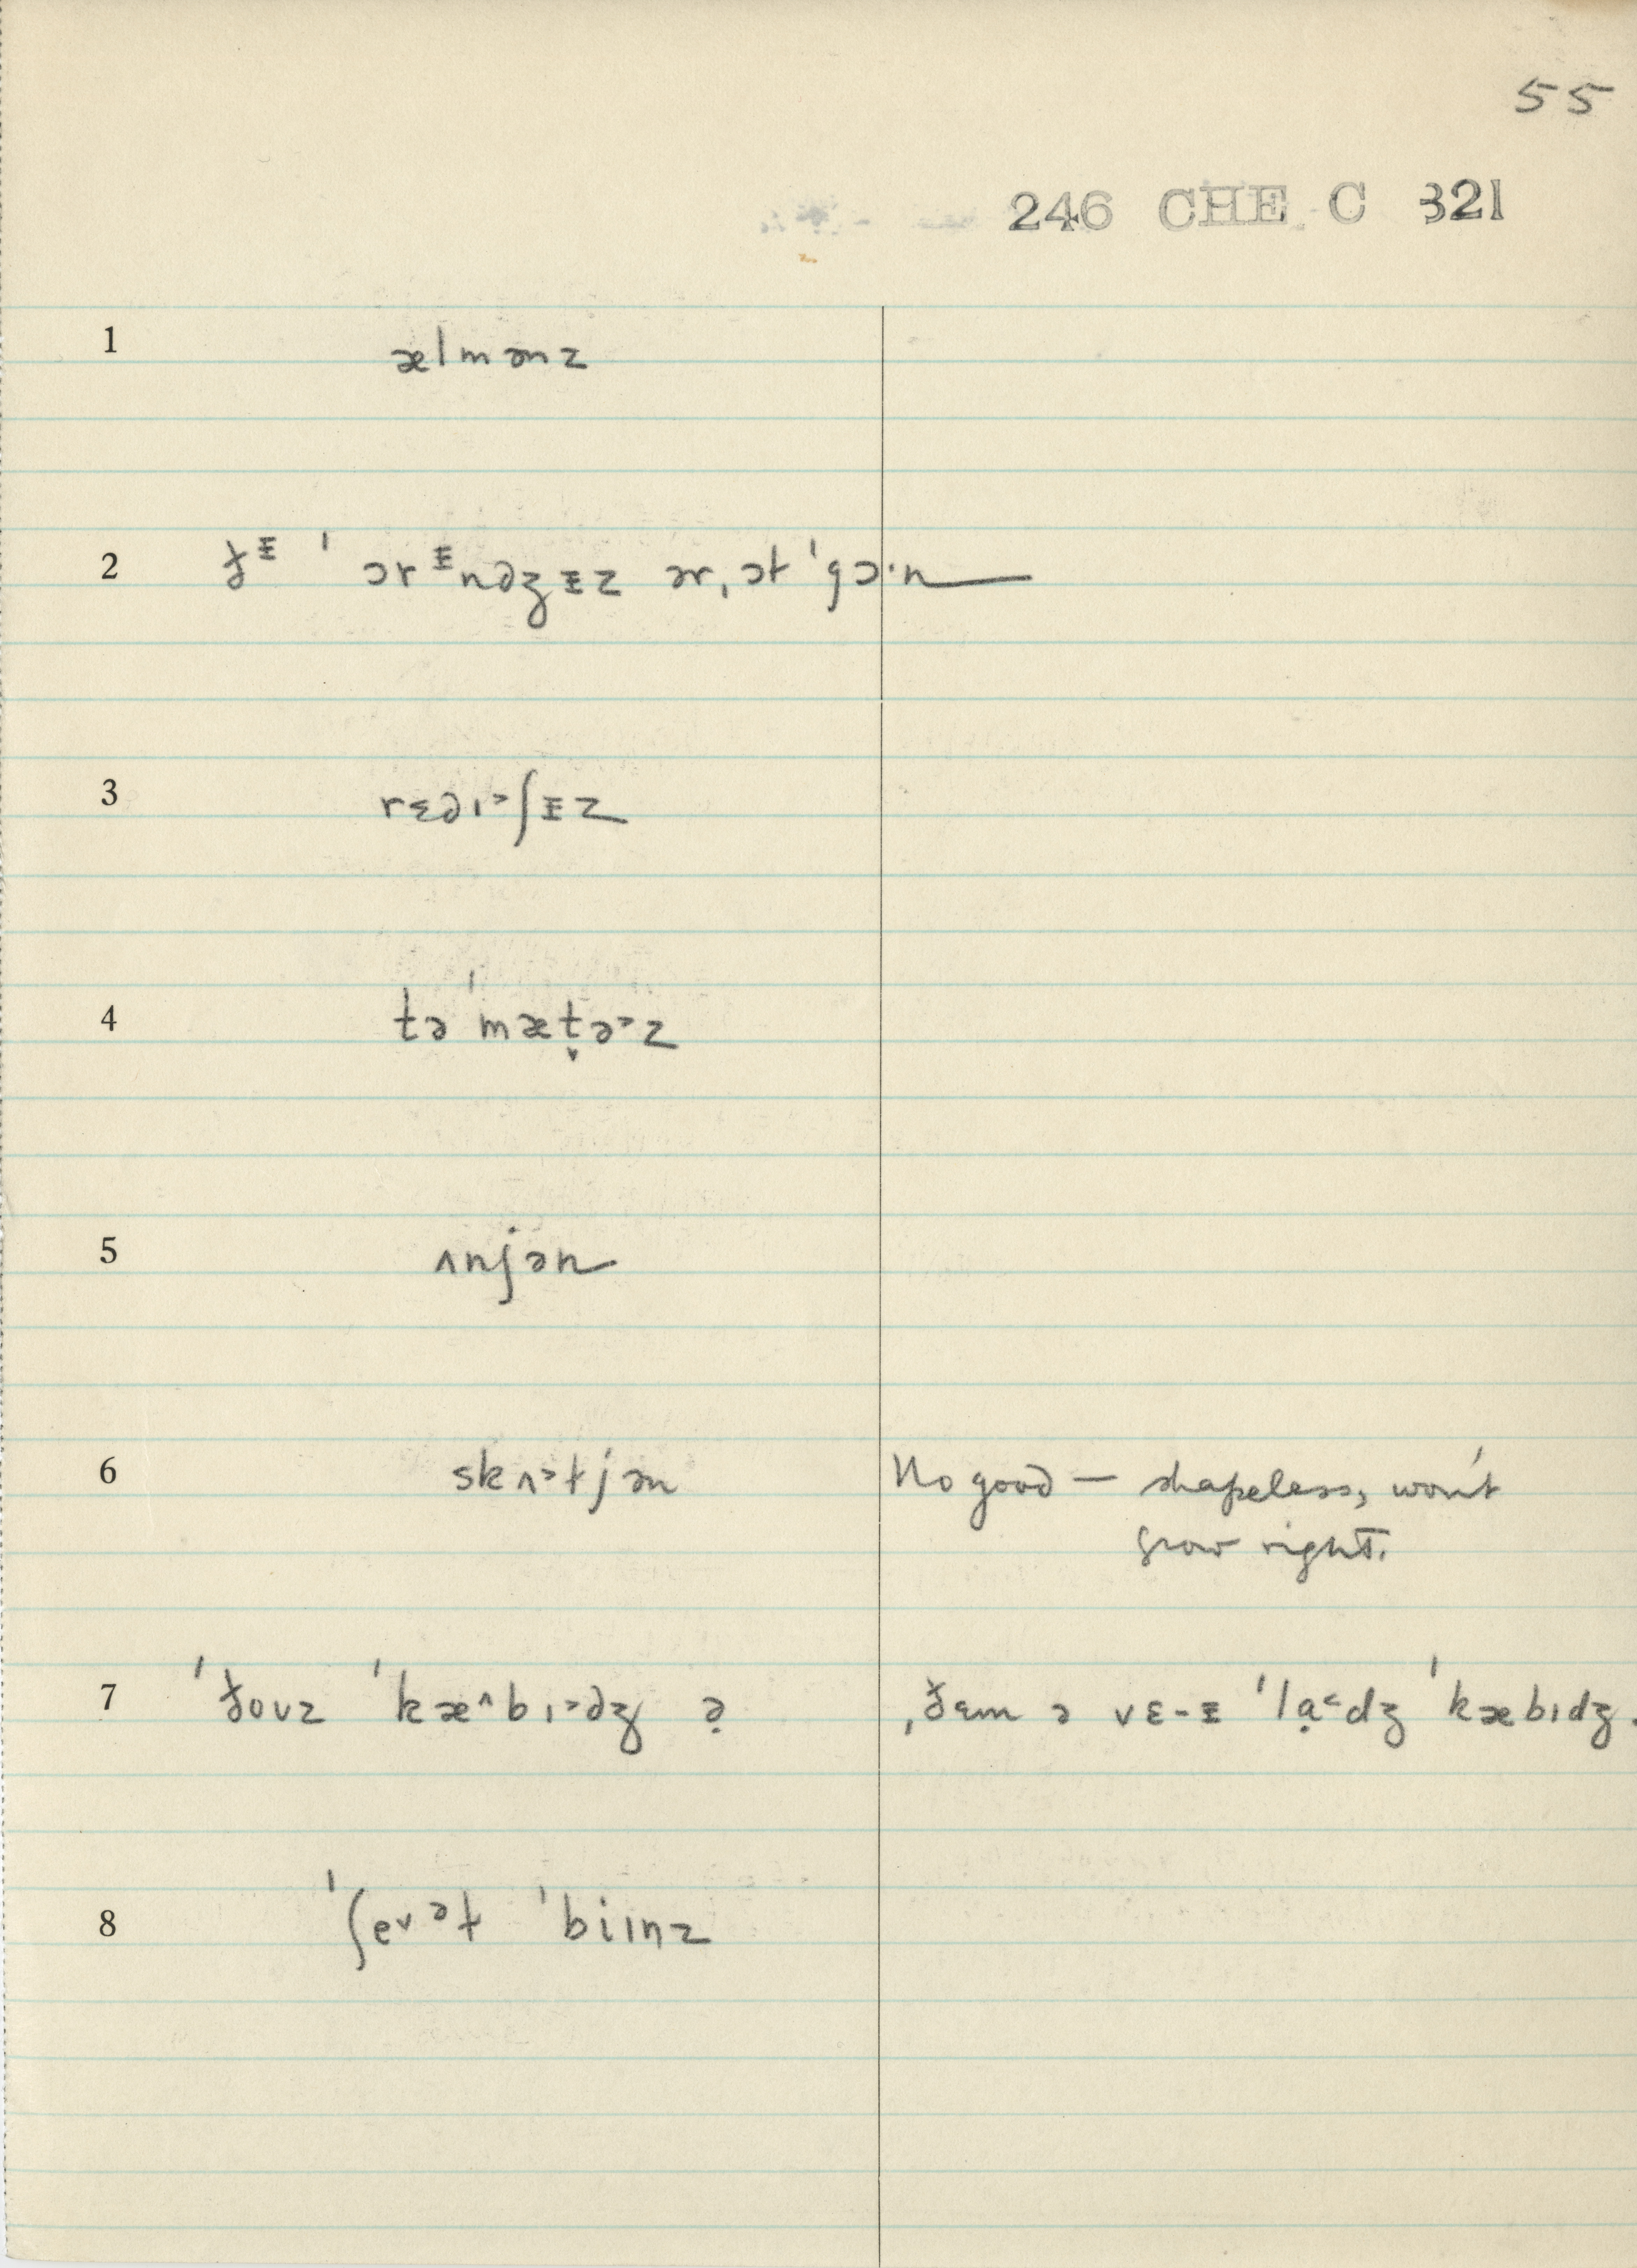 55
246 CHE C 321
1 ælmənz
2 ðᵻ ˈ ɔrᵻndʒᵻz ər ˌɔt ˈgɔ·n
3 rɛdɪ˃ʃᵻz
4 təˈmæt̬ə˃z
5 ʌnjən
6 skʌ˃tjən No good — shapeless, won't
grow right.
7 ˈðoʊz ˈkæ^bɪ˃dʒ ə̣ ˌðɛm ə vɛ-ᵻ ˈlạ˂dʒ ˈkæbɪdʒ.
8 ˈʃev ᵊt ˈbiɪnz